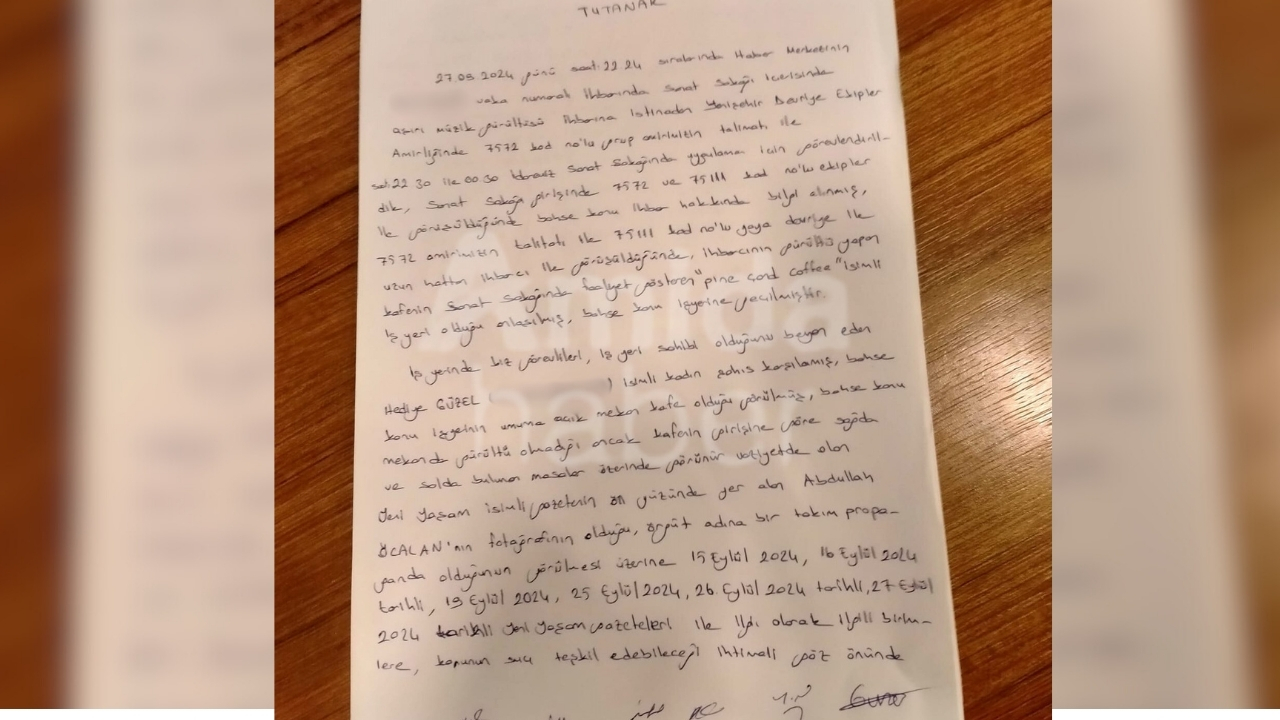 TUTANAK
27.09.2024 günü saat:22.24 sıralarında Haber Merkezinin
vaka numaralı ihbarında Sanat Sokağı içerisinde
aşırı müzik gürültüsü ihbarına istinaden Yenişehir Devriye Ekipler
Amirliğinde 7572 kod no'lu grup amirimizin talimatı ile
saat:22.30 ile 00.30 Sanat Sokağında uygulama için görevlendiril-
dik, Sanat Sokağı girişinde 7572 ve 75111 kod no'lu ekipler
ile görüşüldüğünde bahse konu ihbar hakkında bilgi alınmış,
7572 amirimizin talitatı ile 75111 kod no'lu yaya devriye ile
uzun hattan ihbarcı ile görüşüldüğünde, ihbarcının gürültü yapan
kafenin Sanat Sokağında faaliyet gösteren "pine çond coffee" isimli
iş yeri olduğu anlaşılmış, bahse konu işyerine geçilmiştir.
İş yerinde biz görevlileri, iş yeri sahibi olduğunu beyan eden
Hediye GÜZEL ( ) isimli kadın şahıs karşılamış, bahse
konu işyeinin umuma açık mekan kafe olduğu görülmüş, bahse konu
mekanda gürültü olmadığı ancak kafenin girişine göre sağda
ve solda bulunan masalar üzerinde görünür vaziyetde olan
Yeni Yaşam isimli gazetenin ön yüzünde yer alan Abdullah
ÖCALAN'nın fotoğrafının olduğu, örgüt adına bir takım propa-
ganda olduğunun görülmesi üzerine 15 Eylül 2024, 16 Eylül 2024
tarihli, 19 Eylül 2024, 25 Eylül 2024, 26 Eylül 2024 tarihli, 27 Eylül
2024 tarihli Yeni Yaşam gazeteleri ile ilgi olarak ilgili birim-
lere, konunun suç teşkil edebileceği ihtimali göz önünde
Amida
haber